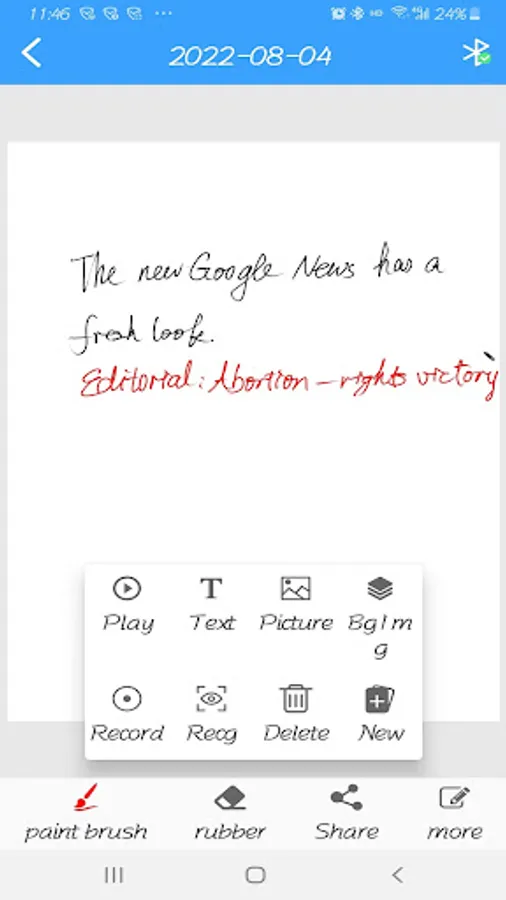 11:46 ... HD 4G 24%
2022-08-04
The new Google News has a
fresh look.
Editorial: Abortion-rights victory
Play Text Picture BgImg
Record Recg Delete New
paint brush rubber Share more